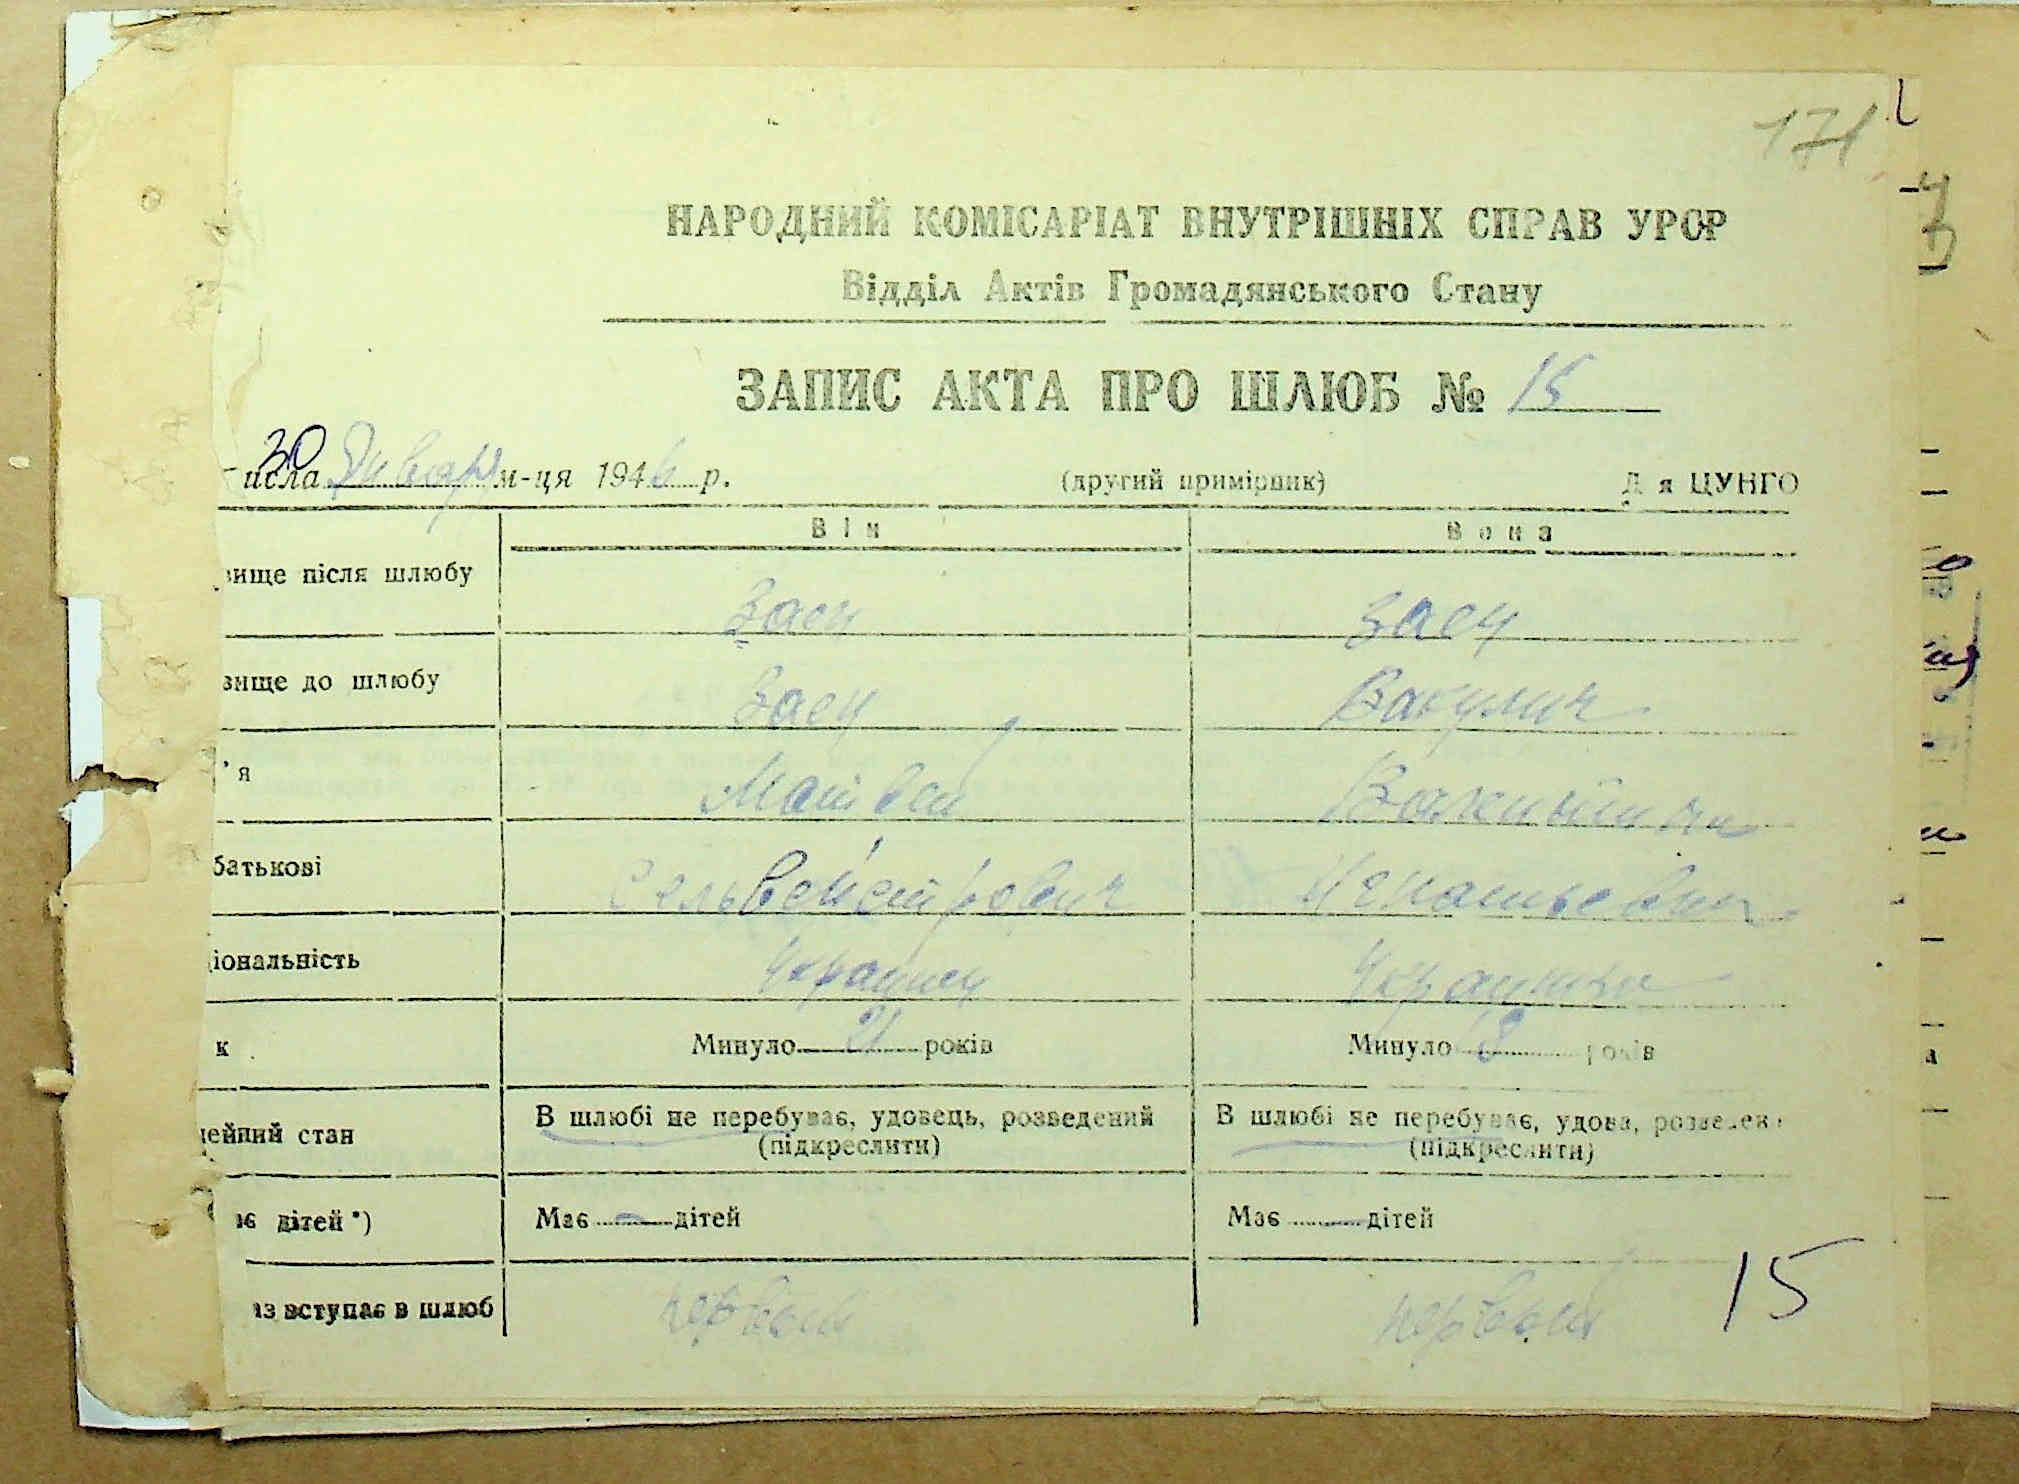 171
НАРОДНИЙ КОМІСАРІАТ ВНУТРІШНІХ СПРАВ УРСР
Відділ Актів Громадянського Стану
ЗАПИС АКТА ПРО ШЛЮБ № 15
30 исла Январ м-ця 1946 р. (другий примірник) Д я ЦУНГО
Він Вона
вище після шлюбу Заец Заец
звище до шлюбу Заец Вакулич
'я Матвей
батькові Сельвестрович Игнатьевна
ціональність Украинец Украинка
к Минуло 21 років Минуло років
мейний стан В шлюбі не перебуває, удовець, розведений В шлюбі не перебуває, удова, розведен
(підкреслити) (підкреслити)
ає дітей*) Має — дітей Має — дітей
аз вступає в шлюб первый первый
15